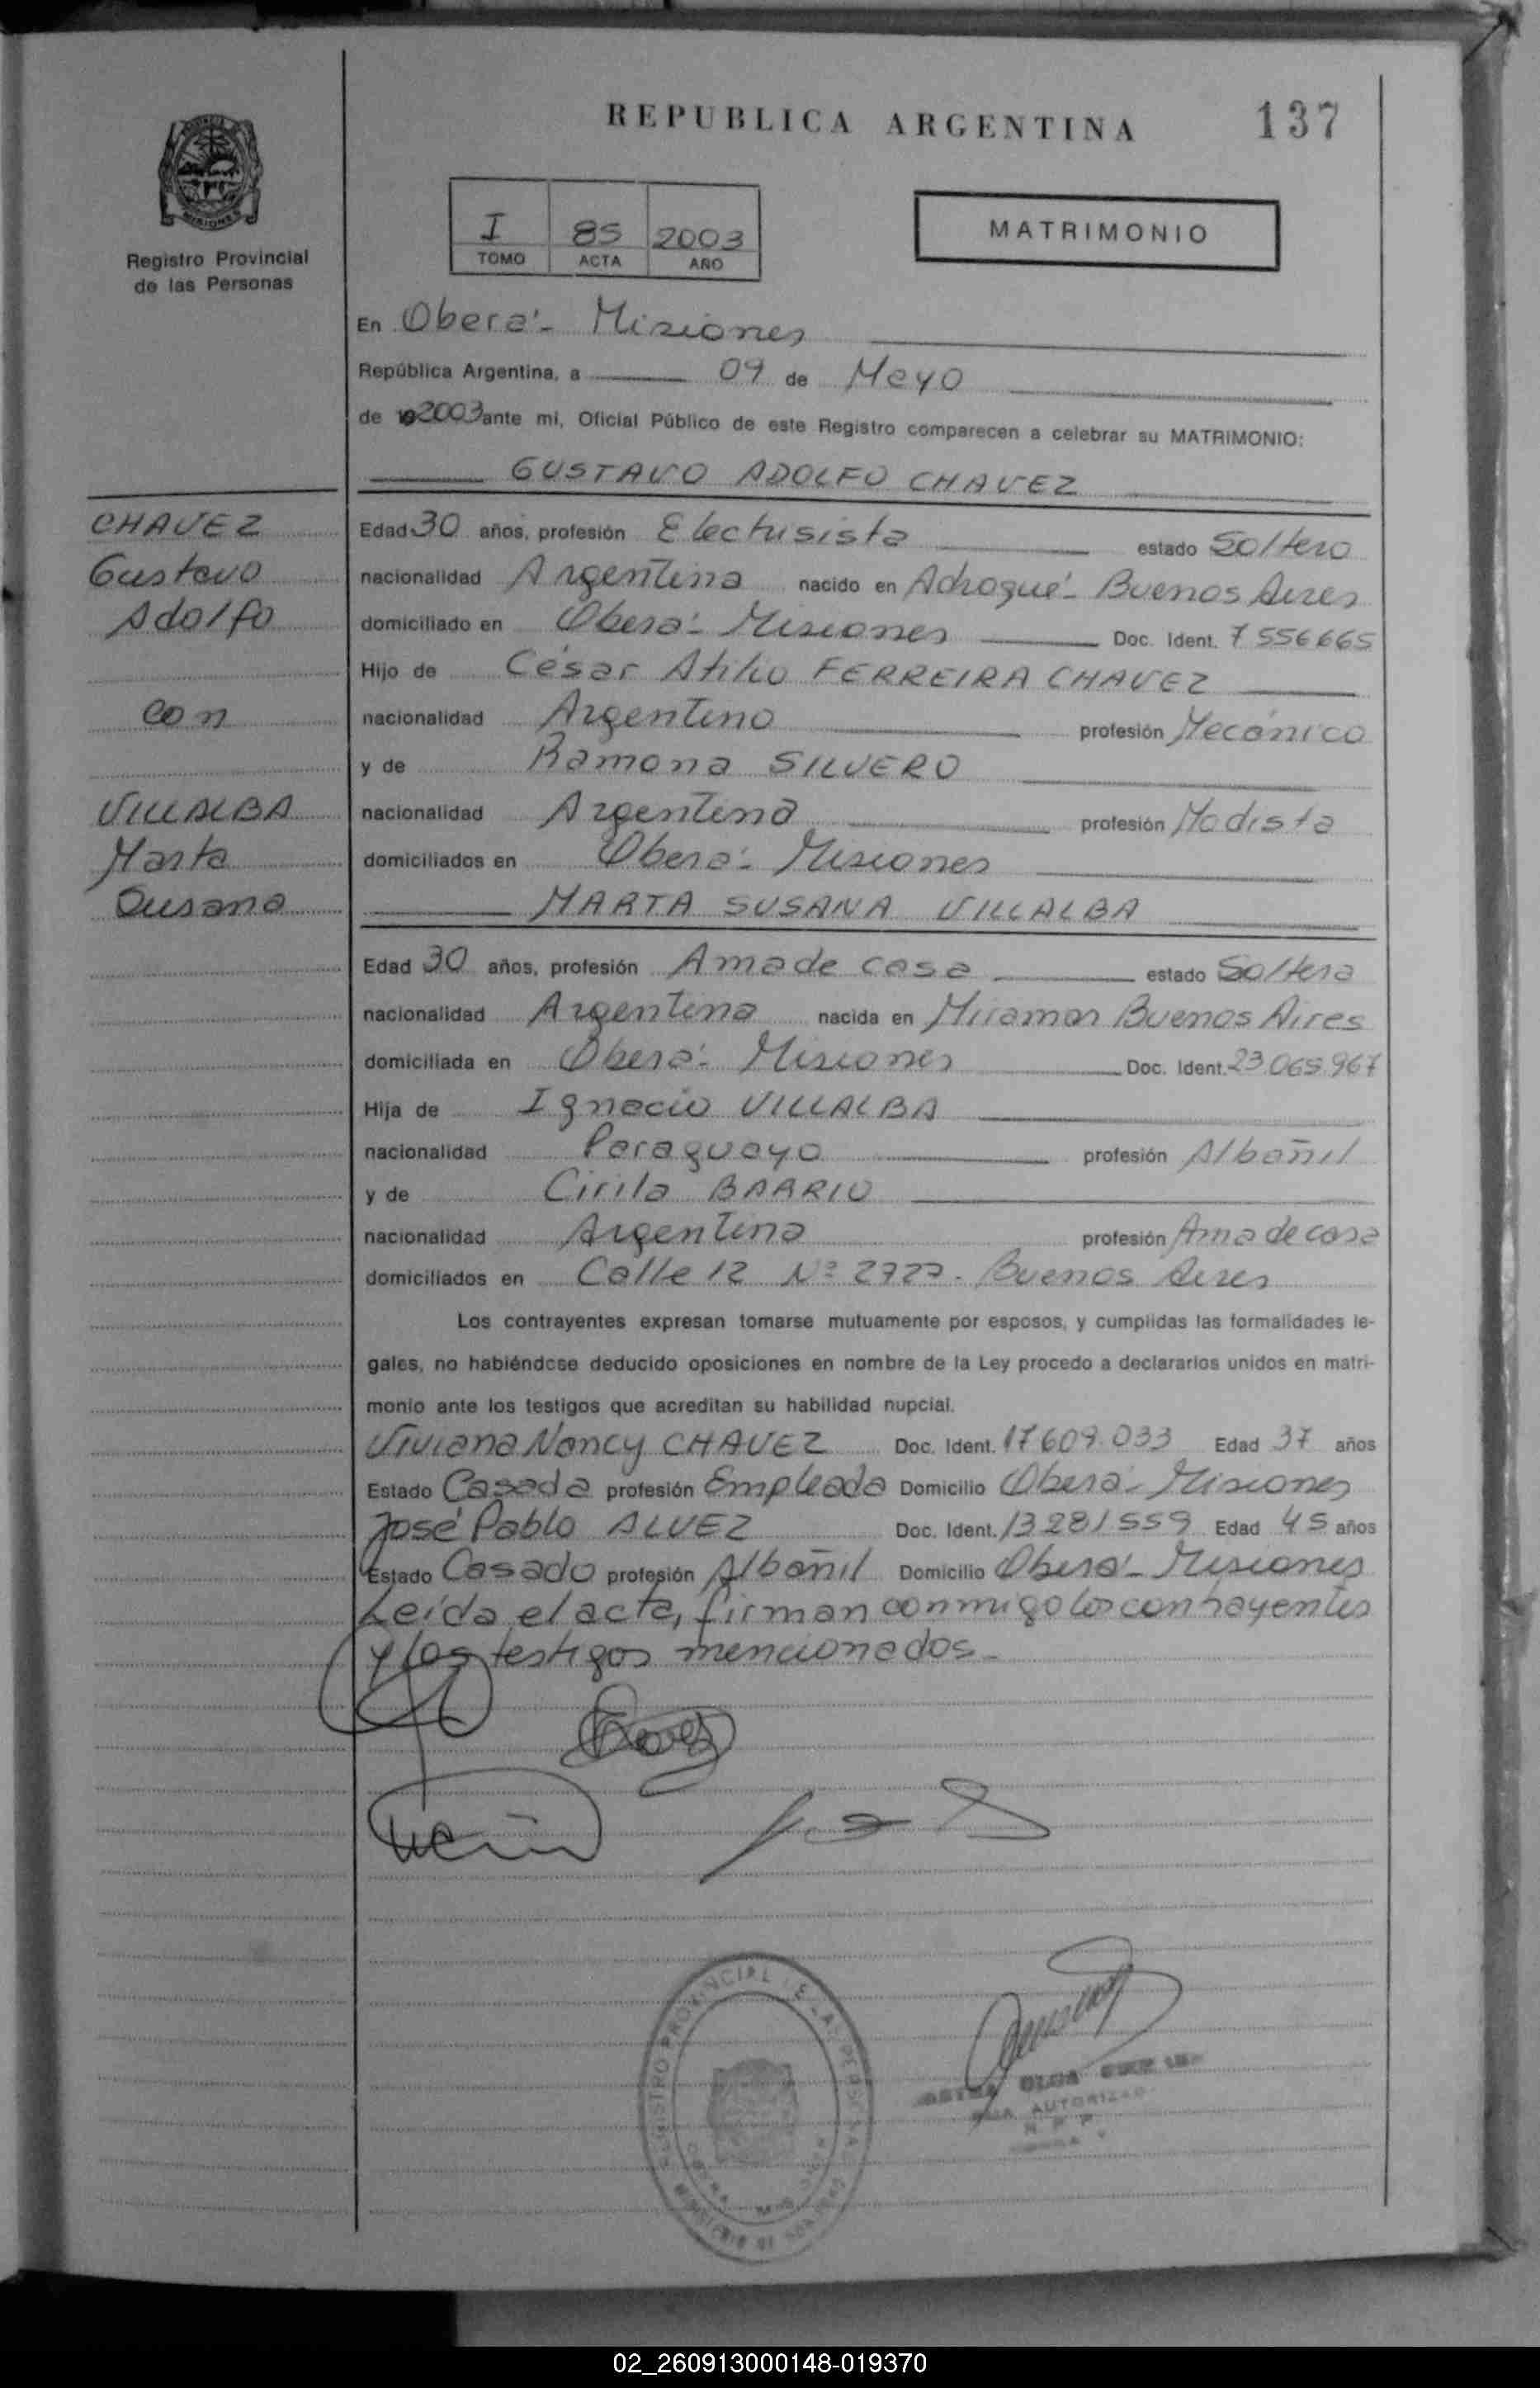 REPUBLICA ARGENTINA
137
MISIONES
Registro Provincial
de las Personas
I 85 2003
TOMO ACTA AÑO
MATRIMONIO
En Oberá - Misiones
República Argentina, a 09 de Mayo
de 2003 ante mi, Oficial Público de este Registro comparecen a celebrar su MATRIMONIO:
GUSTAVO ADOLFO CHAVEZ
CHAVEZ
Gustavo
Adolfo
con
VILLALBA
Marta
Susana
Edad 30 años, profesión Electrisista estado Soltero
nacionalidad Argentina nacido en Adrogué - Buenos Aires
domiciliado en Oberá - Misiones Doc. Ident. 7556665
Hijo de César Atilio FERREIRA CHAVEZ
nacionalidad Argentino profesión Mecánico
y de Ramona SILVERO
nacionalidad Argentina profesión Modista
domiciliados en Oberá - Misiones
MARTA SUSANA VILLALBA
Edad 30 años, profesión Ama de casa estado Soltera
nacionalidad Argentina nacida en Miramar Buenos Aires
domiciliada en Oberá - Misiones Doc. Ident. 23.065.967
Hija de Ignacio VILLALBA
nacionalidad Paraguayo profesión Albañil
y de Cirila BARRIO
nacionalidad Argentina profesión Ama de casa
domiciliados en Calle 12 Nº 2727 - Buenos Aires
Los contrayentes expresan tomarse mutuamente por esposos, y cumplidas las formalidades le-
gales, no habiéndose deducido oposiciones en nombre de la Ley procedo a declararlos unidos en matri-
monio ante los testigos que acreditan su habilidad nupcial.
Viviana Nancy CHAVEZ Doc. Ident. 17609.033 Edad 37 años
Estado Casada profesión Empleada Domicilio Oberá - Misiones
José Pablo ALVEZ Doc. Ident. 13281559 Edad 45 años
Estado Casado profesión Albañil Domicilio Oberá - Misiones
Leída el acta, firman conmigo los contrayentes
y los testigos mencionados -
REGISTRO PROVINCIAL DE LAS PERSONAS
OLGA
AUTORIZAD
02_260913000148-019370